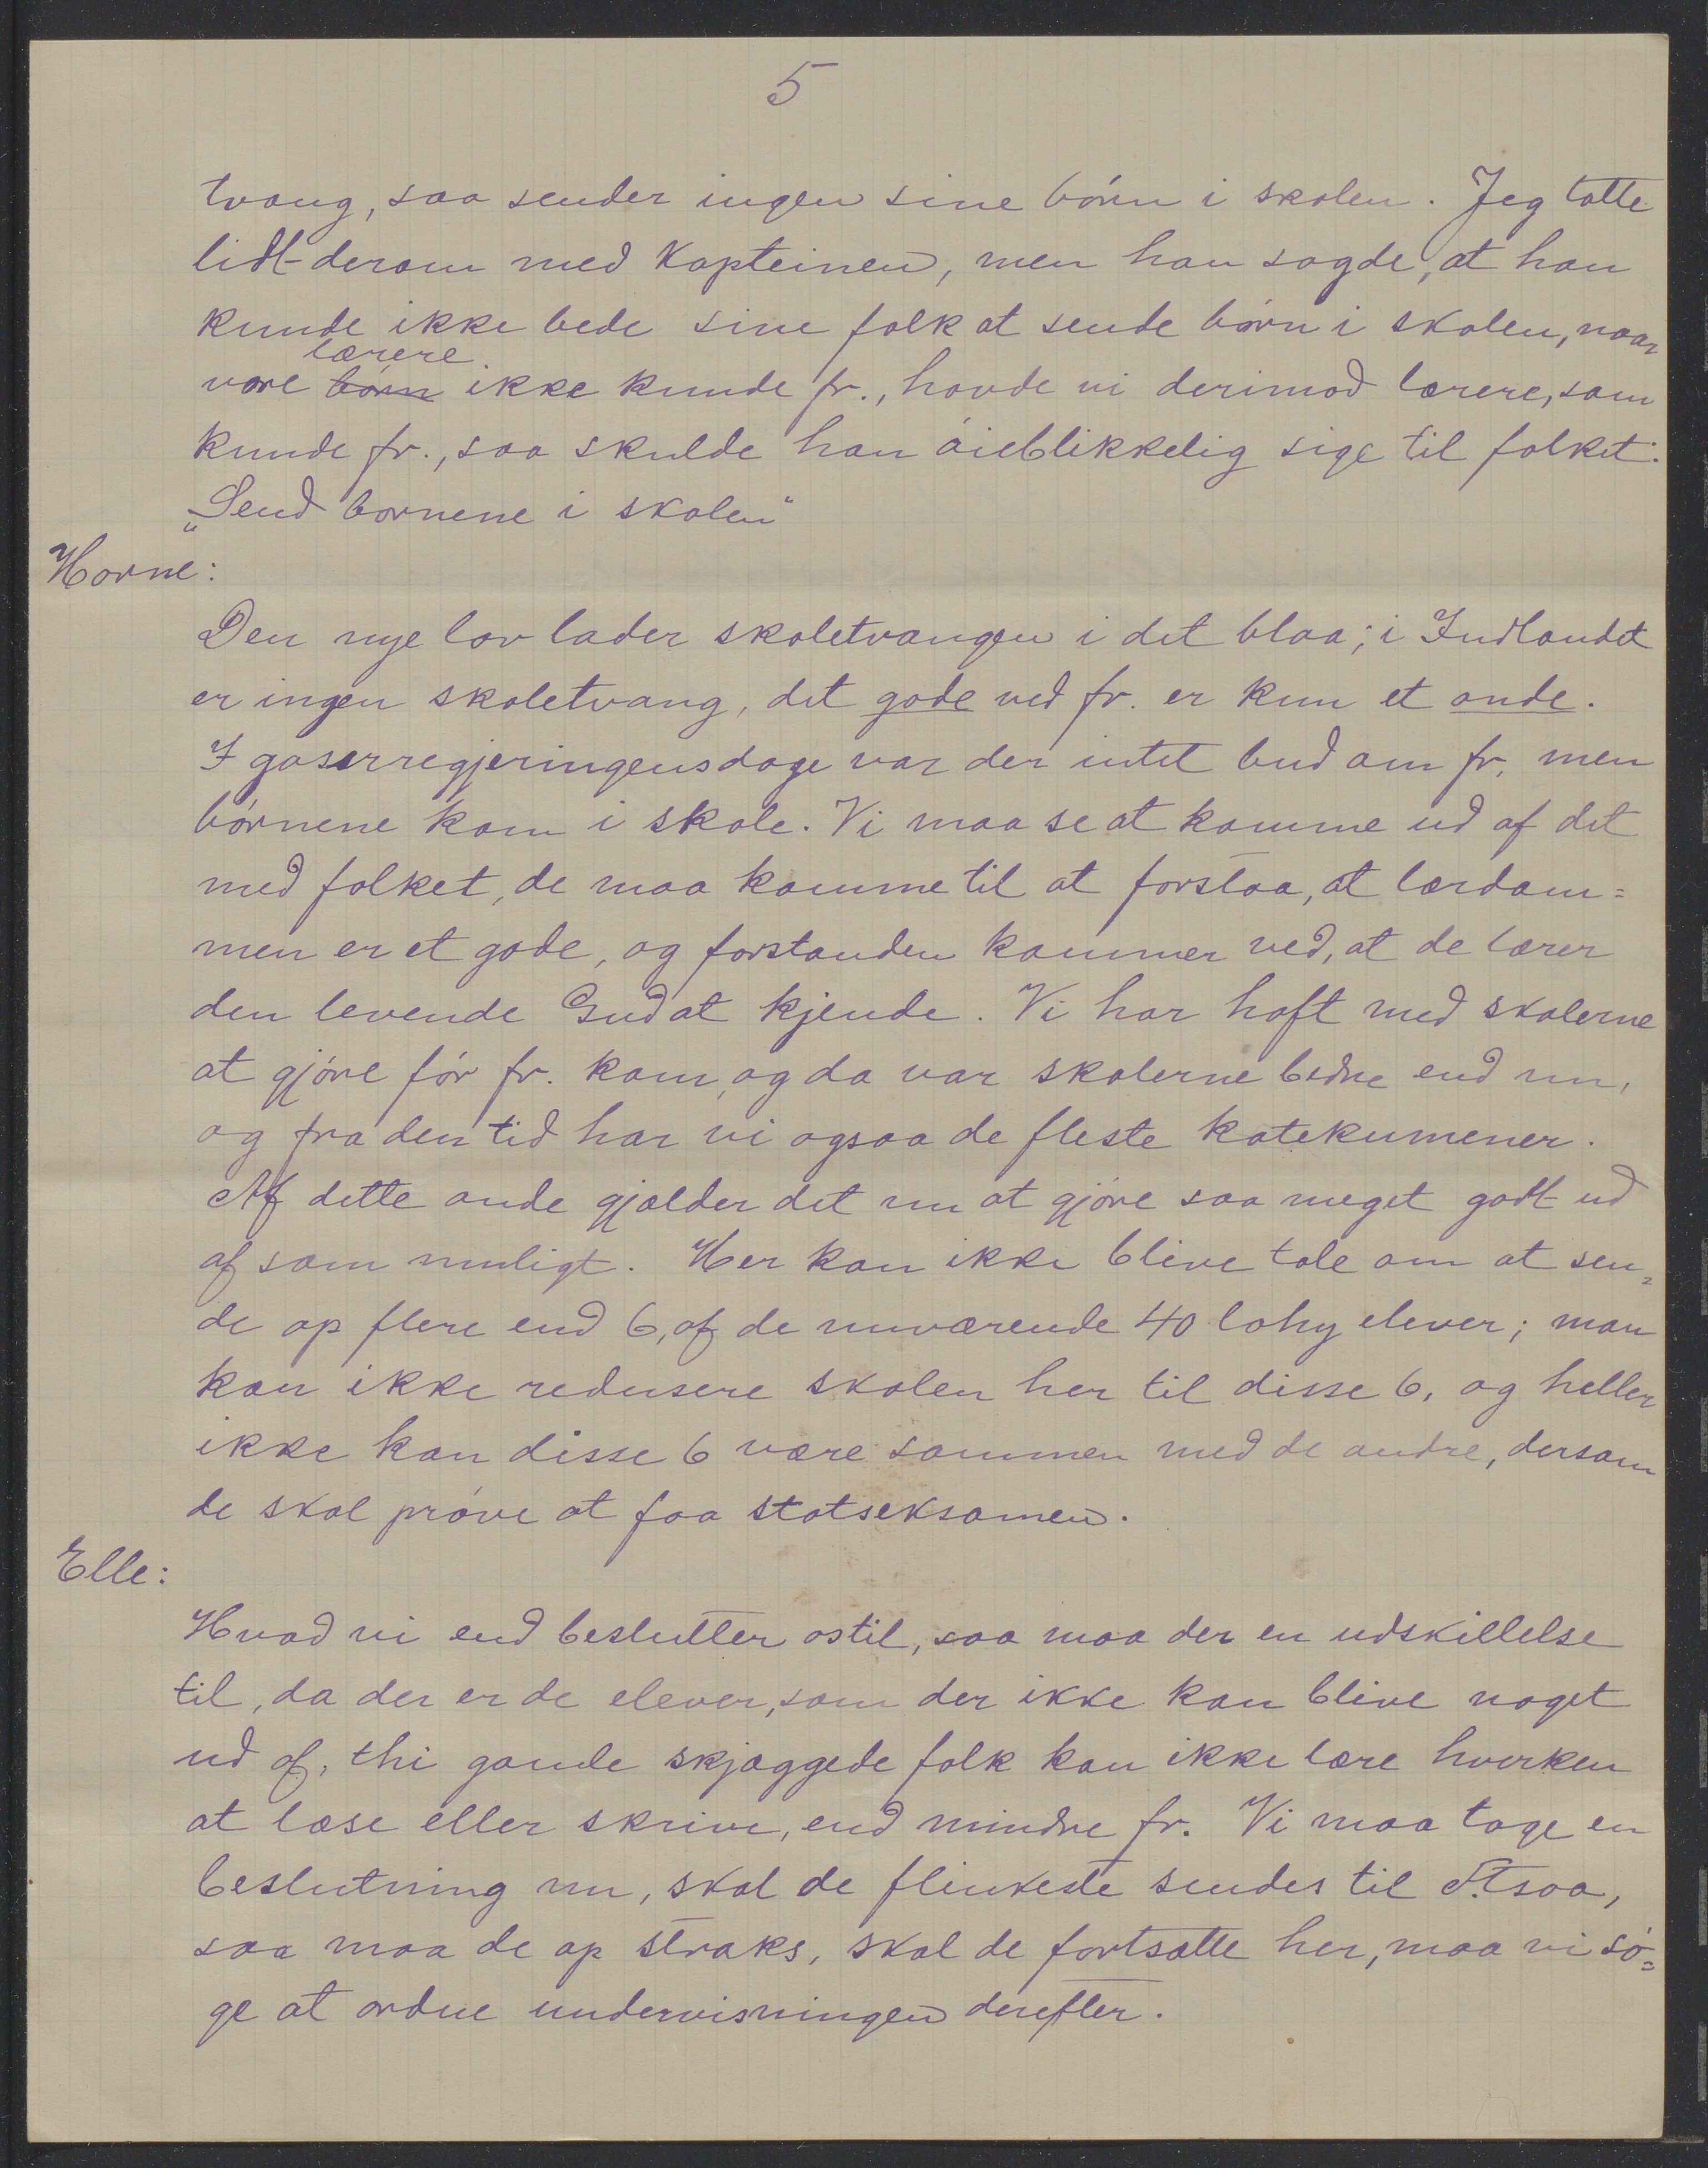 5
tvang, saa sender ingen sine børn i skolen. Jeg talte
lidt derom med Kapteinen, men han sagde, at han
kunde ikke bede sine folk at sende børn i skolen, naar
lærere
vore børn ikke kunde fr., havde vi derimod lærere, som
kunde fr., saa skulde han øieblikkelig sige til folket:
„Send børnene i skolen“
Horne:
Den nye lov lader skoletvangen i det blaa; i Indlandet
er ingen skoletvang, det gode ved fr. er kun et onde.
I gaserregjeringens dage var der intet bud om fr. men
børnene kom i skole. Vi maa se at komme ud af det
med folket, de maa komme til at forstaa, at lærdom=
men er et gode, og forstanden kommer ved, at de lærer
den levende Gud at kjende. Vi har haft med skolerne
at gjøre før fr. kom, og da var skolerne bedre end nu,
og fra den tid har vi ogsaa de fleste katekumener.
Af dette onde gjælder det nu at gjøre saa meget godt ud
af som muligt. Her kan ikke blive tale om at sen=
de op flere end 6, af de nuværende 40 lahy elever; man
kan ikke redusere skolen her til disse 6, og heller
ikke kan disse 6 være sammen med de andre, dersom
de skal prøve at faa statseksamen.
Elle:
Hvad vi end beslutter os til, saa maa der en udskillelse
til, da der er de elever, som der ikke kan blive noget
ud af, thi gamle skjæggede folk kan ikke lære hverken
at læse eller skrive, end mindre fr. Vi maa tage en
beslutning nu, skal de flinkeste sendes til F.tsoa,
saa maa de op straks, skal de fortsætte her, maa vi sø=
ge at ordne undervisningen derefter.